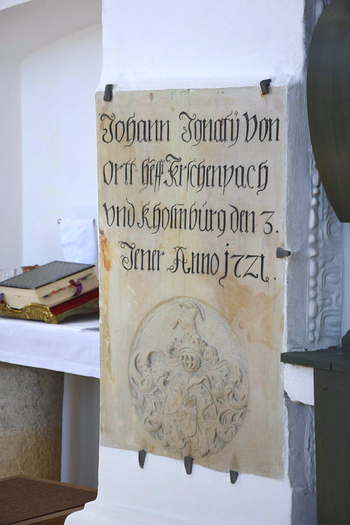 Johann Ignatÿ Von
Ortt heff Kirschenpach
vnd Kholmburg den 3.
Jener Anno 1721.